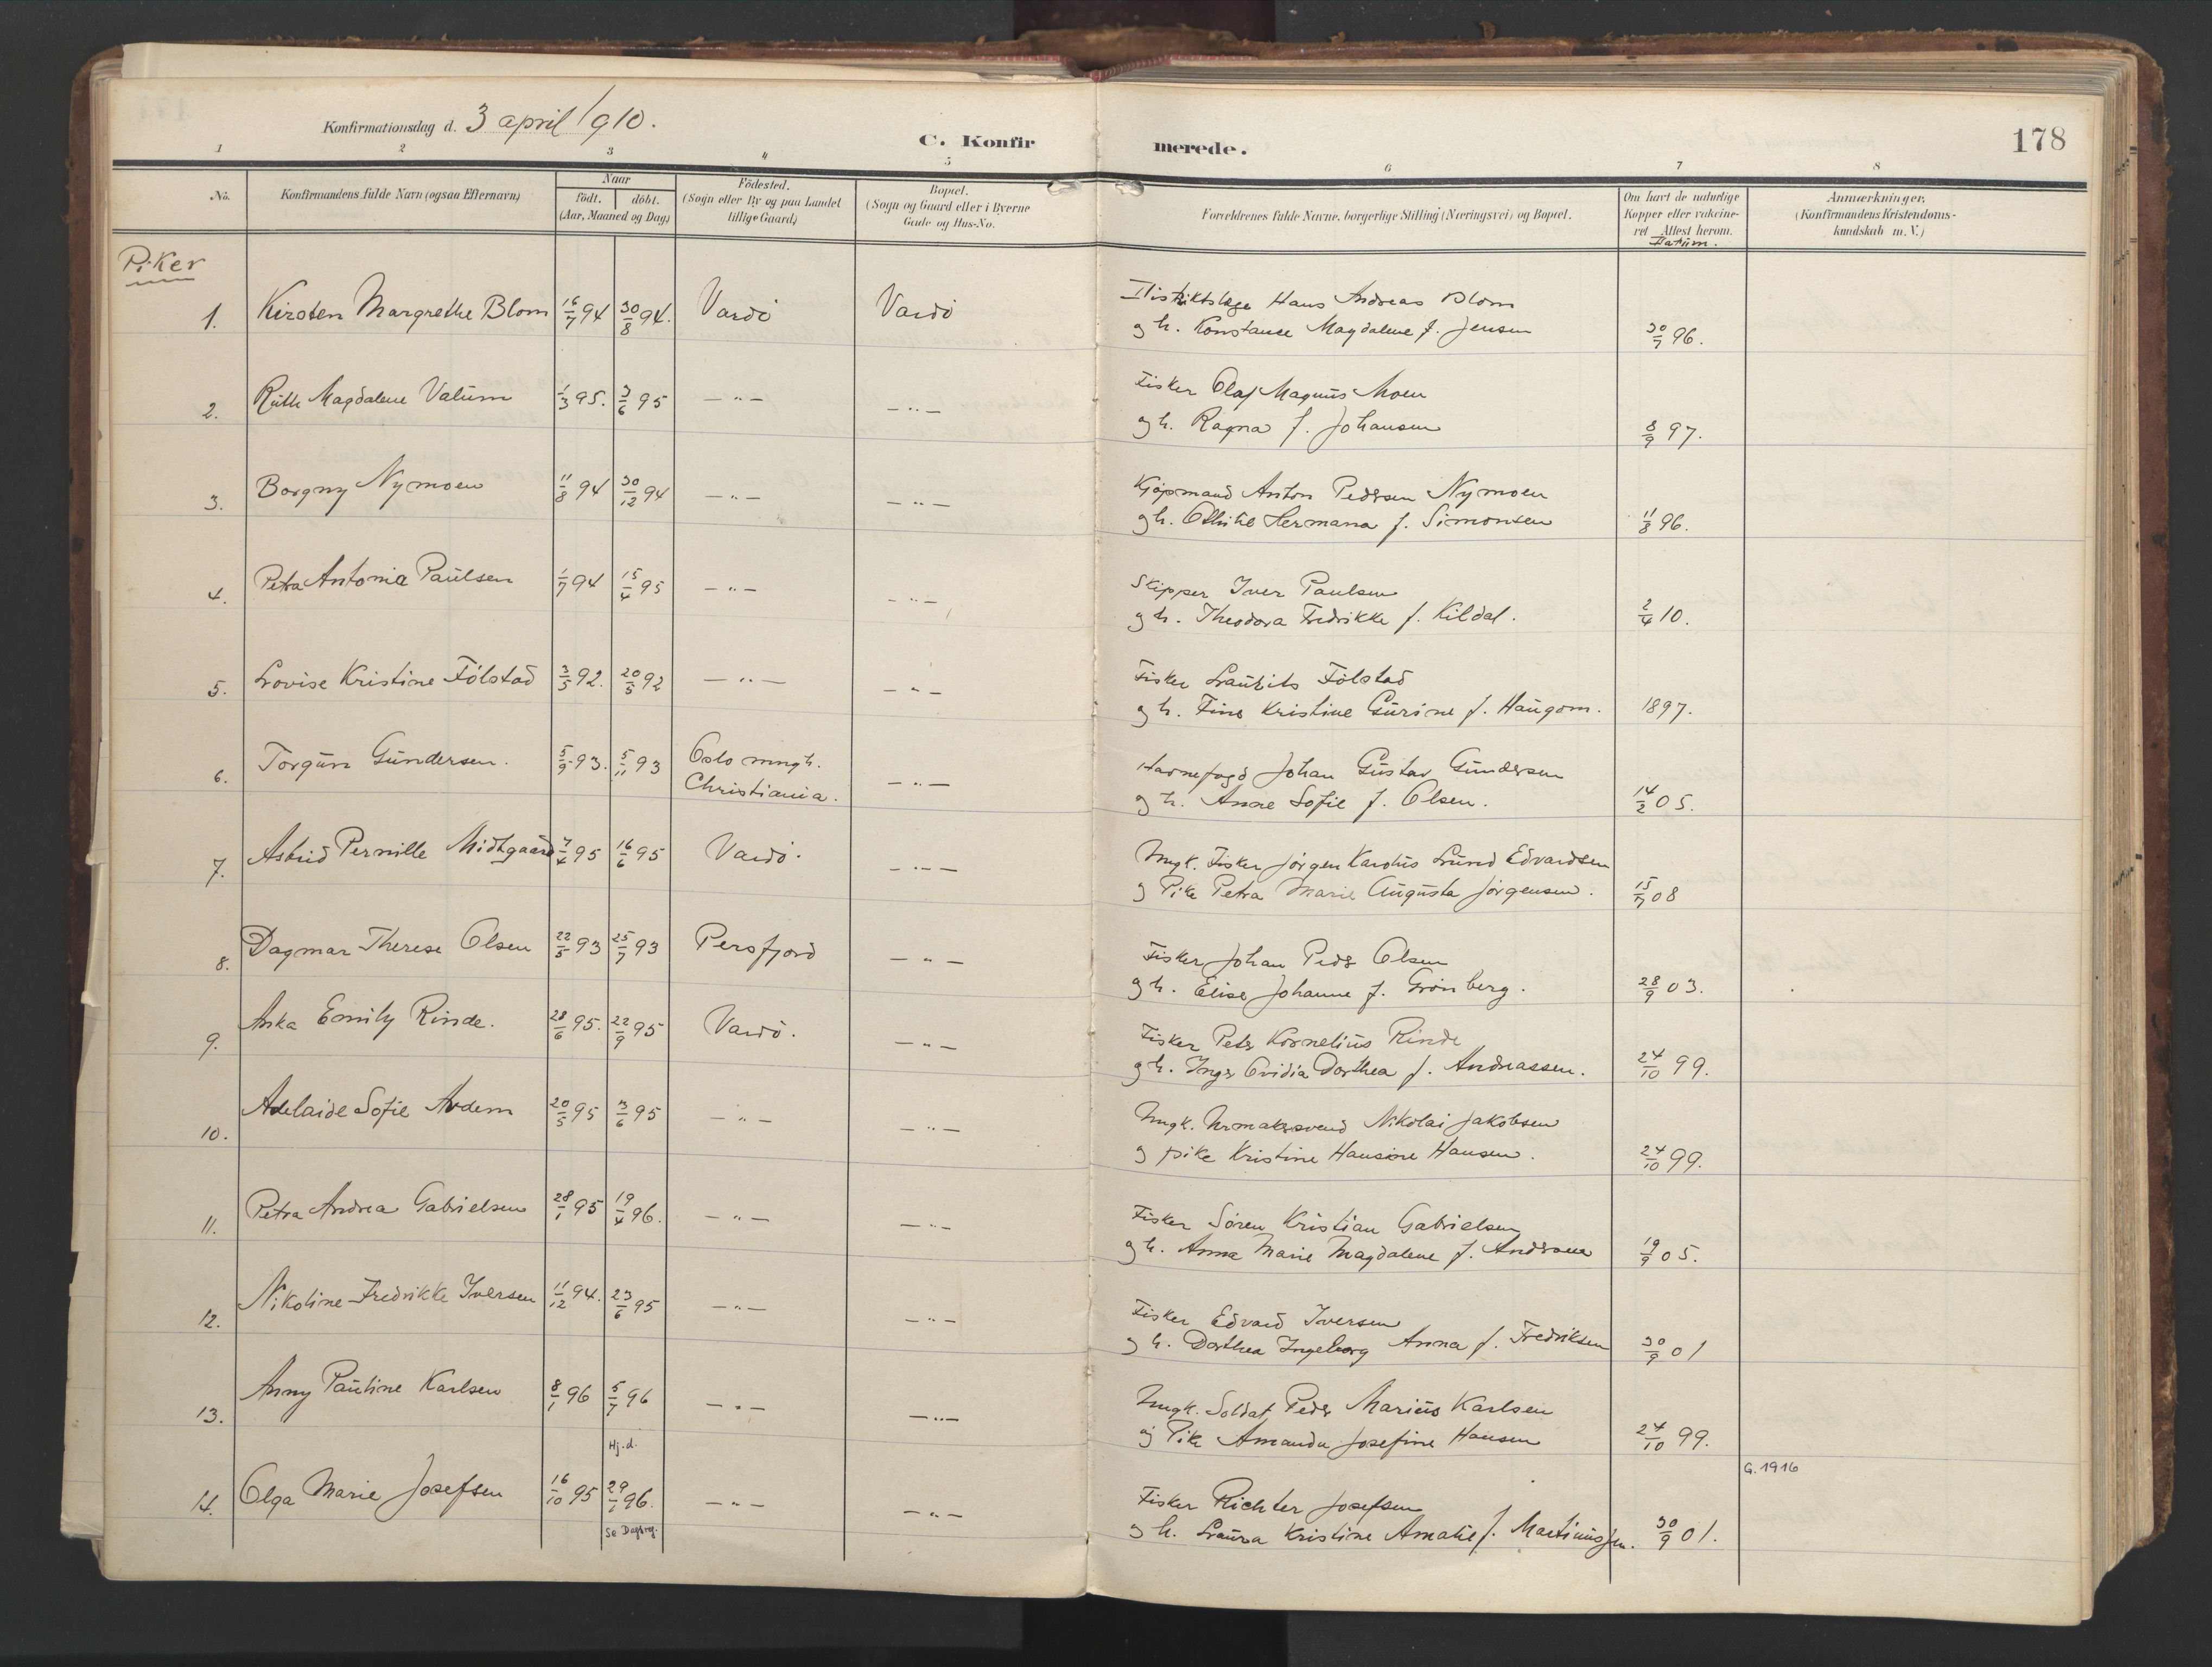 Konfirmationsdag d. 3 april 1910.
C. Konfirmerede.
178
1 2 3 4 5 6 7 8
No.
Konfirmandens fulde Navn (ogsaa Efternavn)
Naar
födt. döbt.
(Aar, Maaned og Dag)
Födested.
(Sogn eller By og paa Landet
tillige Gaard)
Bopæl.
(Sogn og Gaard eller i Byerne
Gade og Hus-No.
Forældrenes fulde Navne, borgerlige Stilling (Næringsvei) og Bopæl.
Om havt de naturlige
Kopper eller vakcine-
ret Attest herom.
Datum.
Anmærkninger.
(Konfirmandens Kristendoms-
kundskab m. V.)
Piker
1. Kirsten Margrethe Blom 16/7 94 30/8 94. Vardö Vardö Distriktslæge Hans Andreas Blom
og h. Konstance Magdalene f. Jensen 30/7 96.
2. Ruth Magdalene Valum 1/3 95. 3/6 95 —"— —"— Fisker Olaf Magnus Moen
og h. Ragna f. Johansen 8/9 97.
3. Borgny Nymoen 11/8 94 30/12 94 —"— —"— Kjøpmand Anton Pedersen Nymoen
og h. Othilie Hermana f. Simonsen 11/8 96.
4. Petra Antonia Paulsen 1/7 94 15/4 95 —"— —"— Skipper Iver Paulsen
og h. Theodora Fredrikke f. Kildal. 2/4 10.
5. Lovise Kristine Fölstad 3/5 92. 20/5 92 —"— —"— Fisker Laurits Fölstad
og h. Fine Kristine Gurine f. Haugom. 1897.
6. Torgun Gundersen. 5/9 93. 5/11 93 Oslo mngh.
Christiania. —"— Havnefogd Johan Gustav Gundersen
og h. Anne Sofie f. Olsen. 14/2 05.
7. Astrid Pernille Midtgaard 7/4 95 16/6 95 Vardö. —"— Ungk. Fisker Jörgen Karolus Lund Edvardsen
og Pike Petra Marie Augusta Jörgensen. 15/7 08
8. Dagmar Therese Olsen 22/5 93 25/7 93 Persfjord —"— Fisker Johan Peder Olsen
og h. Elise Johanne f. Grönberg. 28/9 03.
9. Aska Emily Rinde. 28/6 95. 22/9 95 Vardö. —"— Fisker Peder Kornelius Rinde
og h. Inger Ovidia Dorthea f. Andreassen. 24/10 99.
10. Adelaide Sofie Ardem 20/5 95 3/6 95 —"— —"— Ungk. Urmakersvend Nikolai Jakobsen
og pike Kristine Hansine Hansen. 24/10 99.
11. Petra Andrea Gabrielsen 28/1 95 19/4 96. —"— —"— Fisker Sören Kristian Gabrielsen
og h. Anna Marie Magdalene f. Andersen 19/9 05.
12. Nikoline Fredrikke Iversen 11/12 94. 23/6 95 —"— —"— Fisker Edvard Iversen
og h. Dorthea Ingeborg Anna f. Fredriksen 30/9 01
13. Anny Pauline Karlsen 8/1 96 5/7 96 —"— —"— Ungk. Soldat Peder Marius Karlsen
og Pike Amanda Josefine Hansen 24/10 99.
Hj.d. G. 1916
14. Olga Marie Josefsen 16/10 95 29/1 96. —"— —"— Fisker Richter Josefsen
og h. Laura Kristine Amalie f. Martinussen. 30/9 01.
Se Dagreg.